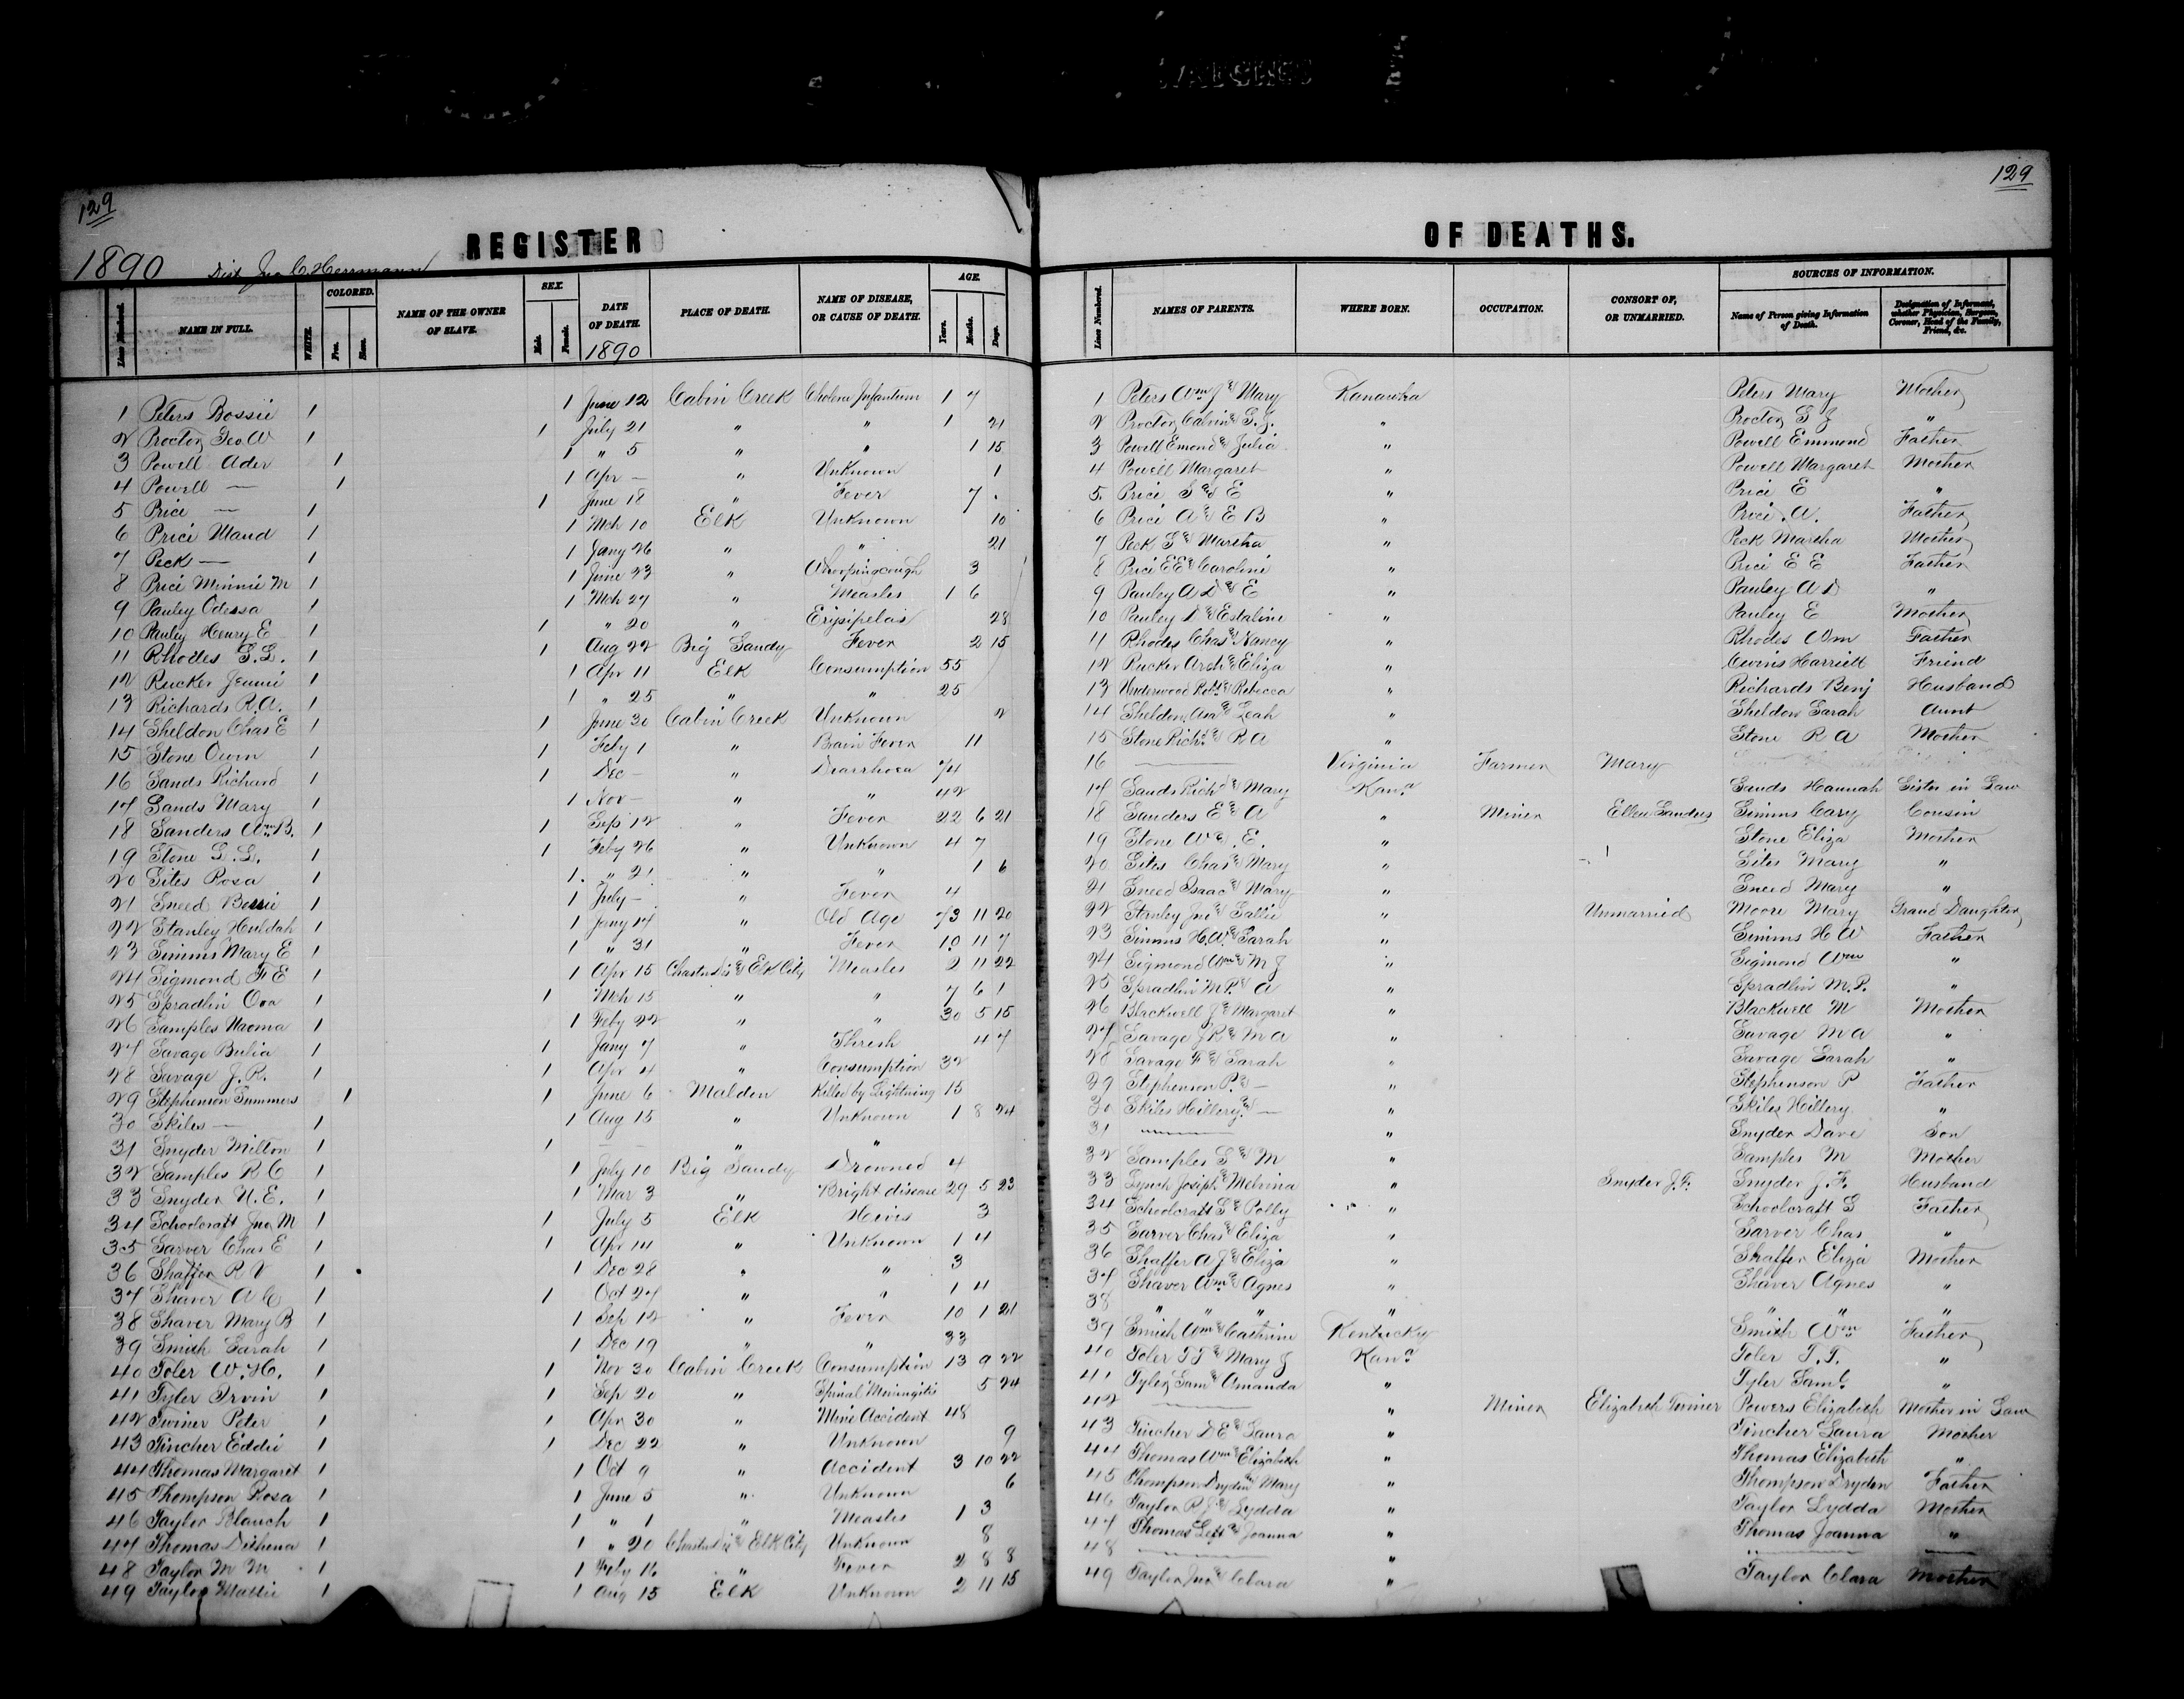 129
129
REGISTER OF DEATHS.
1890 Dist Jno C. Herrmann
Lines Numbered. NAME IN FULL. WHITE. COLORED. Free. Slave. NAME OF THE OWNER OF SLAVE. SEX. Male. Female. DATE OF DEATH. 1890 PLACE OF DEATH. NAME OF DISEASE, OR CAUSE OF DEATH. AGE. Years. Months. Days. Lines Numbered. NAMES OF PARENTS. WHERE BORN. OCCUPATION. CONSORT OF, OR UNMARRIED. SOURCES OF INFORMATION. Name of Person giving Information of Death. Designation of Informant, whether Physician, Surgeon, Coroner, Head of the Family, Friend, &c.
1 Peters Bossie 1 1 June 12 Cabin Creek Cholera Infantum 1 7 1 Peters Wm J & Mary Kanawha Peters Mary Mother
2 Proctor Geo W 1 1 July 21 " " 1 21 2 Proctor Calvin & S. J. " Proctor S J "
3 Powell Ader 1 1 " 5 " " 1 15 3 Powell Emond & Julia " Powell Emmond Father
4 Powell — 1 1 Apr — " Unknown 1 4 Powell Margaret " Powell Margaret Mother
5 Price — 1 1 June 18 " Fever 7 5 Price S & E " Price E "
6 Price Maud 1 1 Mch 10 Elk Unknown 10 6 Price A & E B " Price A. Father
7 Peck — 1 1 Jany 26 " " 21 7 Peck S & Martha " Peck Martha Mother
8 Price Minnie M 1 1 June 23 " Whoopingcough 3 8 Price E E & Caroline " Price E E Father
9 Pauley Odessa 1 1 Mch 27 " Measles 1 6 9 Pauley A D & E " Pauley A D "
10 Pauley Henry E 1 1 " 20 " Erysipelas 28 10 Pauley D & Estaline " Pauley E Mother
11 Rhodes G. L. 1 1 Aug 22 Big Sandy Fever 2 15 11 Rhodes Chas & Nancy " Rhodes Wm Father
12 Rucker Jennie 1 1 Apr 11 Elk Consumption 55 12 Rucker Arch & Eliza " Harriett Friend
13 Richards R. A. 1 1 " 25 " " 25 13 Underwood Robt & Rebecca " Richards Benj Husband
14 Sheldon Chas E 1 1 June 30 Cabin Creek Unknown 2 14 Sheldon Asa & Leah " Sheldon Sarah Aunt
15 Stone Owen 1 1 Feby 1 " Brain Fever 11 15 Stone Richd & R A " Stone R A Mother
16 Sands Richard 1 1 Dec — " Diarrhoea 74 16 — Virginia Farmer Mary
17 Sands Mary 1 1 Nov — " " 42 17 Sands Richd & Mary Kana Sands Hannah Sister in Law
18 Sanders Wm B. 1 1 Sep 12 " Fever 22 6 21 18 Sanders E & A " Miner Ellen Sanders Simms Cary Cousin
19 Stone L. L. 1 1 Feby 26 " Unknown 4 7 19 Stone W & E. " Stone Eliza Mother
20 Sites Rosa 1 1 " 21 " " 1 6 20 Sites Chas & Mary " Sites Mary "
21 Sneed Bessie 1 1 July — " Fever 4 21 Sneed Isaac & Mary " Sneed Mary "
22 Stanley Huldah 1 1 Jany 14 " Old Age 73 11 20 22 Stanley Jno & Sallie " Unmarried Moore Mary Grand Daughter
23 Simms Mary E 1 1 " 31 " Fever 10 11 7 23 Simms H. W. & Sarah " Simms H W Father
24 Sigmond F E 1 1 Apr 15 Chastn Dis & Elk City Measles 2 11 22 24 Sigmond Wm & M J " Sigmond Wm "
25 Spradlin Ova 1 1 Mch 15 " " 7 6 1 25 Spradlin M. P. & A " Spradlin M. P. "
26 Samples Naoma 1 1 Feby 22 " " 30 5 15 26 Blackwell J & Margaret " Blackwell M Mother
27 Savage Bulia 1 1 Jany 7 " Thresh 4 7 27 Savage J R & M A " Savage M A "
28 Savage J. R. 1 1 Apr 4 " Consumption 32 28 Savage F & Sarah " Savage Sarah "
29 Stephenson Summers 1 1 June 6 Malden Killed by Lightning 15 29 Stephenson P. & — " Stephenson P Father
30 Skiles — 1 1 Aug 15 " Unknown 1 8 24 30 Skiles Hillery & — " Skiles Hillery "
31 Snyder Milton 1 1 — — " " 31 — " Snyder Dave Son
32 Samples R C 1 1 July 10 Big Sandy Drowned 4 32 Samples S & M " Samples M Mother
33 Snyder N. E. 1 1 Mar 3 " Bright disease 29 5 23 33 Lynch Joseph & Melvina " Snyder J. F. Snyder J. F. Husband
34 Schoolcraft Jno M 1 1 July 5 Elk Hives 3 34 Schoolcraft S & Polly " Schoolcraft S Father
35 Sarver Chas E 1 1 Apr 14 " Unknown 1 4 35 Sarver Chas & Eliza " Sarver Chas "
36 Shaffer R V 1 1 Dec 28 " " 3 36 Shaffer A J & Eliza " Shaffer Eliza Mother
37 Shaver A C 1 1 Oct 27 " " 1 4 37 Shaver Wm & Agnes " Shaver Agnes "
38 Shaver Mary B 1 1 Sep 12 " Fever 10 1 21 38 " " " " " " "
39 Smith Sarah 1 1 Dec 19 " " 33 39 Smith Wm & Catherine Kentucky Smith Wm Father
40 Toler W. H. 1 1 Nov 30 Cabin Creek Consumption 13 9 22 40 Toler T T & Mary J Kana Toler T. T. "
41 Tyler Irvin 1 1 Sep 20 " Spinal Meningitis 5 24 41 Tyler Sam & Amanda " Tyler Saml "
42 Twiner Peter 1 1 Apr 30 " Mine Accident 48 42 — " Miner Elizabeth Powers Elizabeth Mother in Law
43 Tincher Eddie 1 1 Dec 22 " Unknown 9 43 Tincher D E & Laura " Tincher Laura Mother
44 Thomas Margaret 1 1 Oct 9 " Accident 3 10 22 44 Thomas Wm & Elizabeth " Thomas Elizabeth "
45 Thompson Rosa 1 1 June 5 " Unknown 6 45 Thompson Dryden & Mary " Thompson Dryden Father
46 Taylor Blanch 1 1 " 1 " Measles 1 3 46 Taylor R J & Lydda " Taylor Lydda Mother
47 Thomas Dithena 1 1 " 20 Chastn Dis & Elk City Unknown 8 47 Thomas Left & Joanna " Thomas Joanna "
48 Taylor M M 1 1 Feby 16 " Fever 2 8 8 48 — " — —
49 Taylor Mattie 1 1 Aug 15 Elk Unknown 2 11 15 49 Taylor Jno & Clara " Taylor Clara Mother